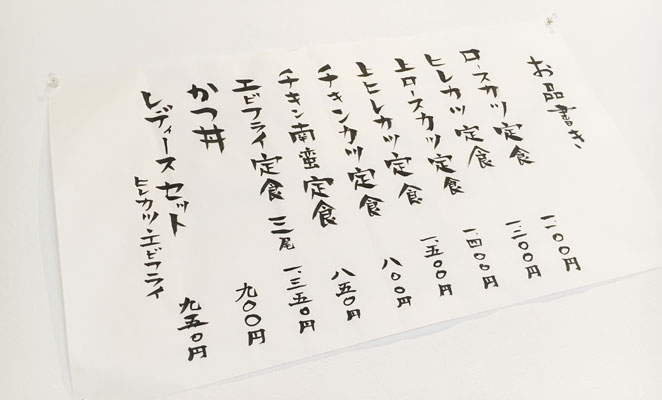 お品書き
ロースカツ定食 一、一〇〇円
ヒレカツ定食 一、二〇〇円
上ロースカツ定食 一、四〇〇円
上ヒレカツ定食 一、五〇〇円
チキンカツ定食 八〇〇円
チキン南蛮定食 八五〇円
エビフライ定食 三尾 一、三五〇円
かつ丼 九〇〇円
レディースセット
ヒレカツ・エビフライ 九五〇円